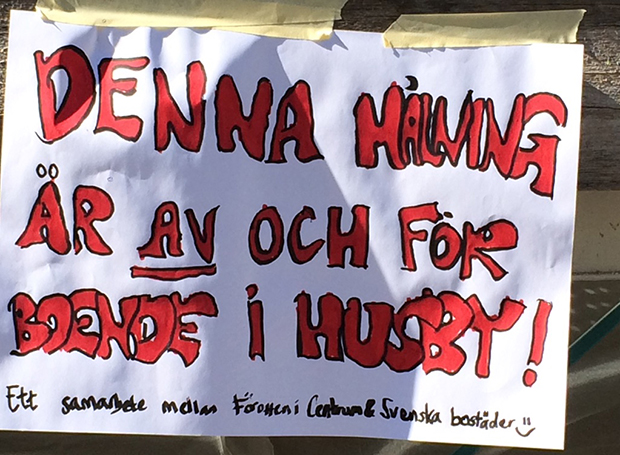 DENNA MÅLNING
ÄR AV OCH FÖR
BOENDE I HUSBY!
Ett samarbete mellan Förorten i Centrum & Svenska bostäder